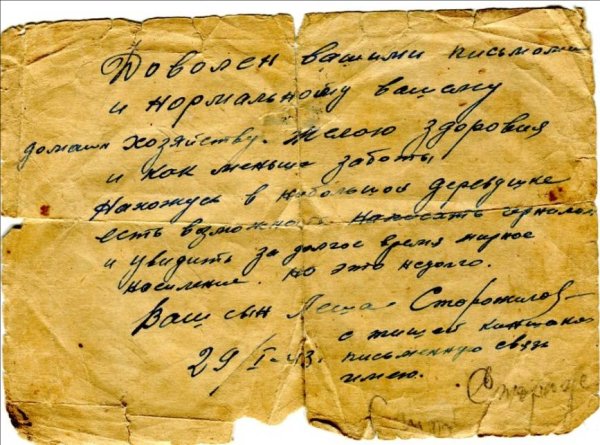 Доволен вашими письмами
и нормальному вашему
домашн хозяйству. Желаю здоровия
и как меньше заботы
Нахожусь в небольшой деревушке
есть возможность написать чернилом
и увидить за долгое время мирное
население. Но это недолго.
Ваш сын Леша Сторожилов
29/I-43.
с тищей
письменную связь
имею.